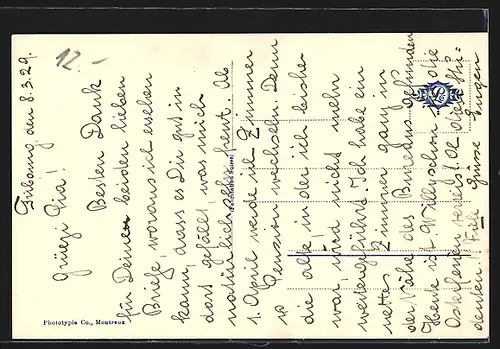 12.-
Fribourg den 8.3.29.
Grüezi Pia!
Besten Dank
für Deine beiden lieben
Briefe, woraus ich ersehen
kann, dass es Dir gut in
dort gefällt, was mich
natürlich sehr freut. Ab
1. April werde ich Zimmer
u Pension wechseln. Denn
die alte, in der ich bisher
war, wird nicht mehr
weitergeführt. Ich habe ein
nettes Zimmer ganz in
der Nähe des Bureaus gefunden
Heute ist Willy schon in die
Osterferien verreist. Ob diese
denten! Viele Grüsse Eugen
Phototypie Co., Montreux